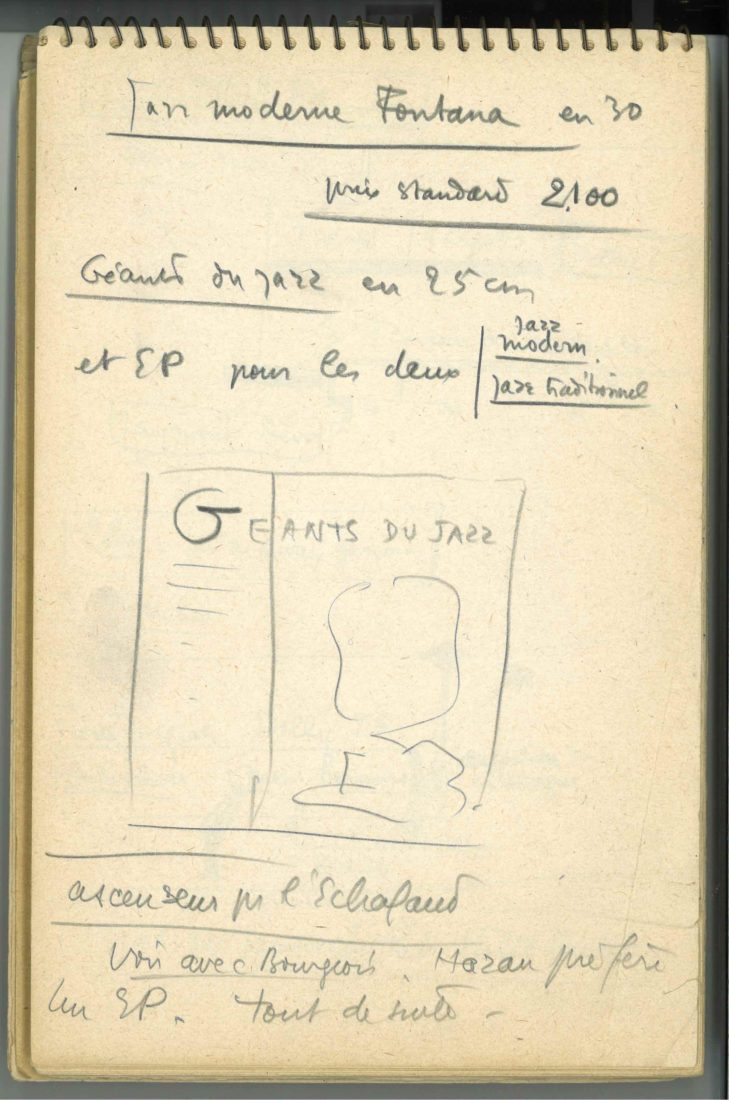 Jazz moderne Fontana en 30
prix standard 2.100
Géants du jazz en 25 cm
et EP pour les deux
jazz
modern.
jazz traditionnel
GEANTS DU JAZZ
ascenseur pr l'Echafaud
Voir avec Bourgeois. Hazan préfère
un EP. tout de suite -